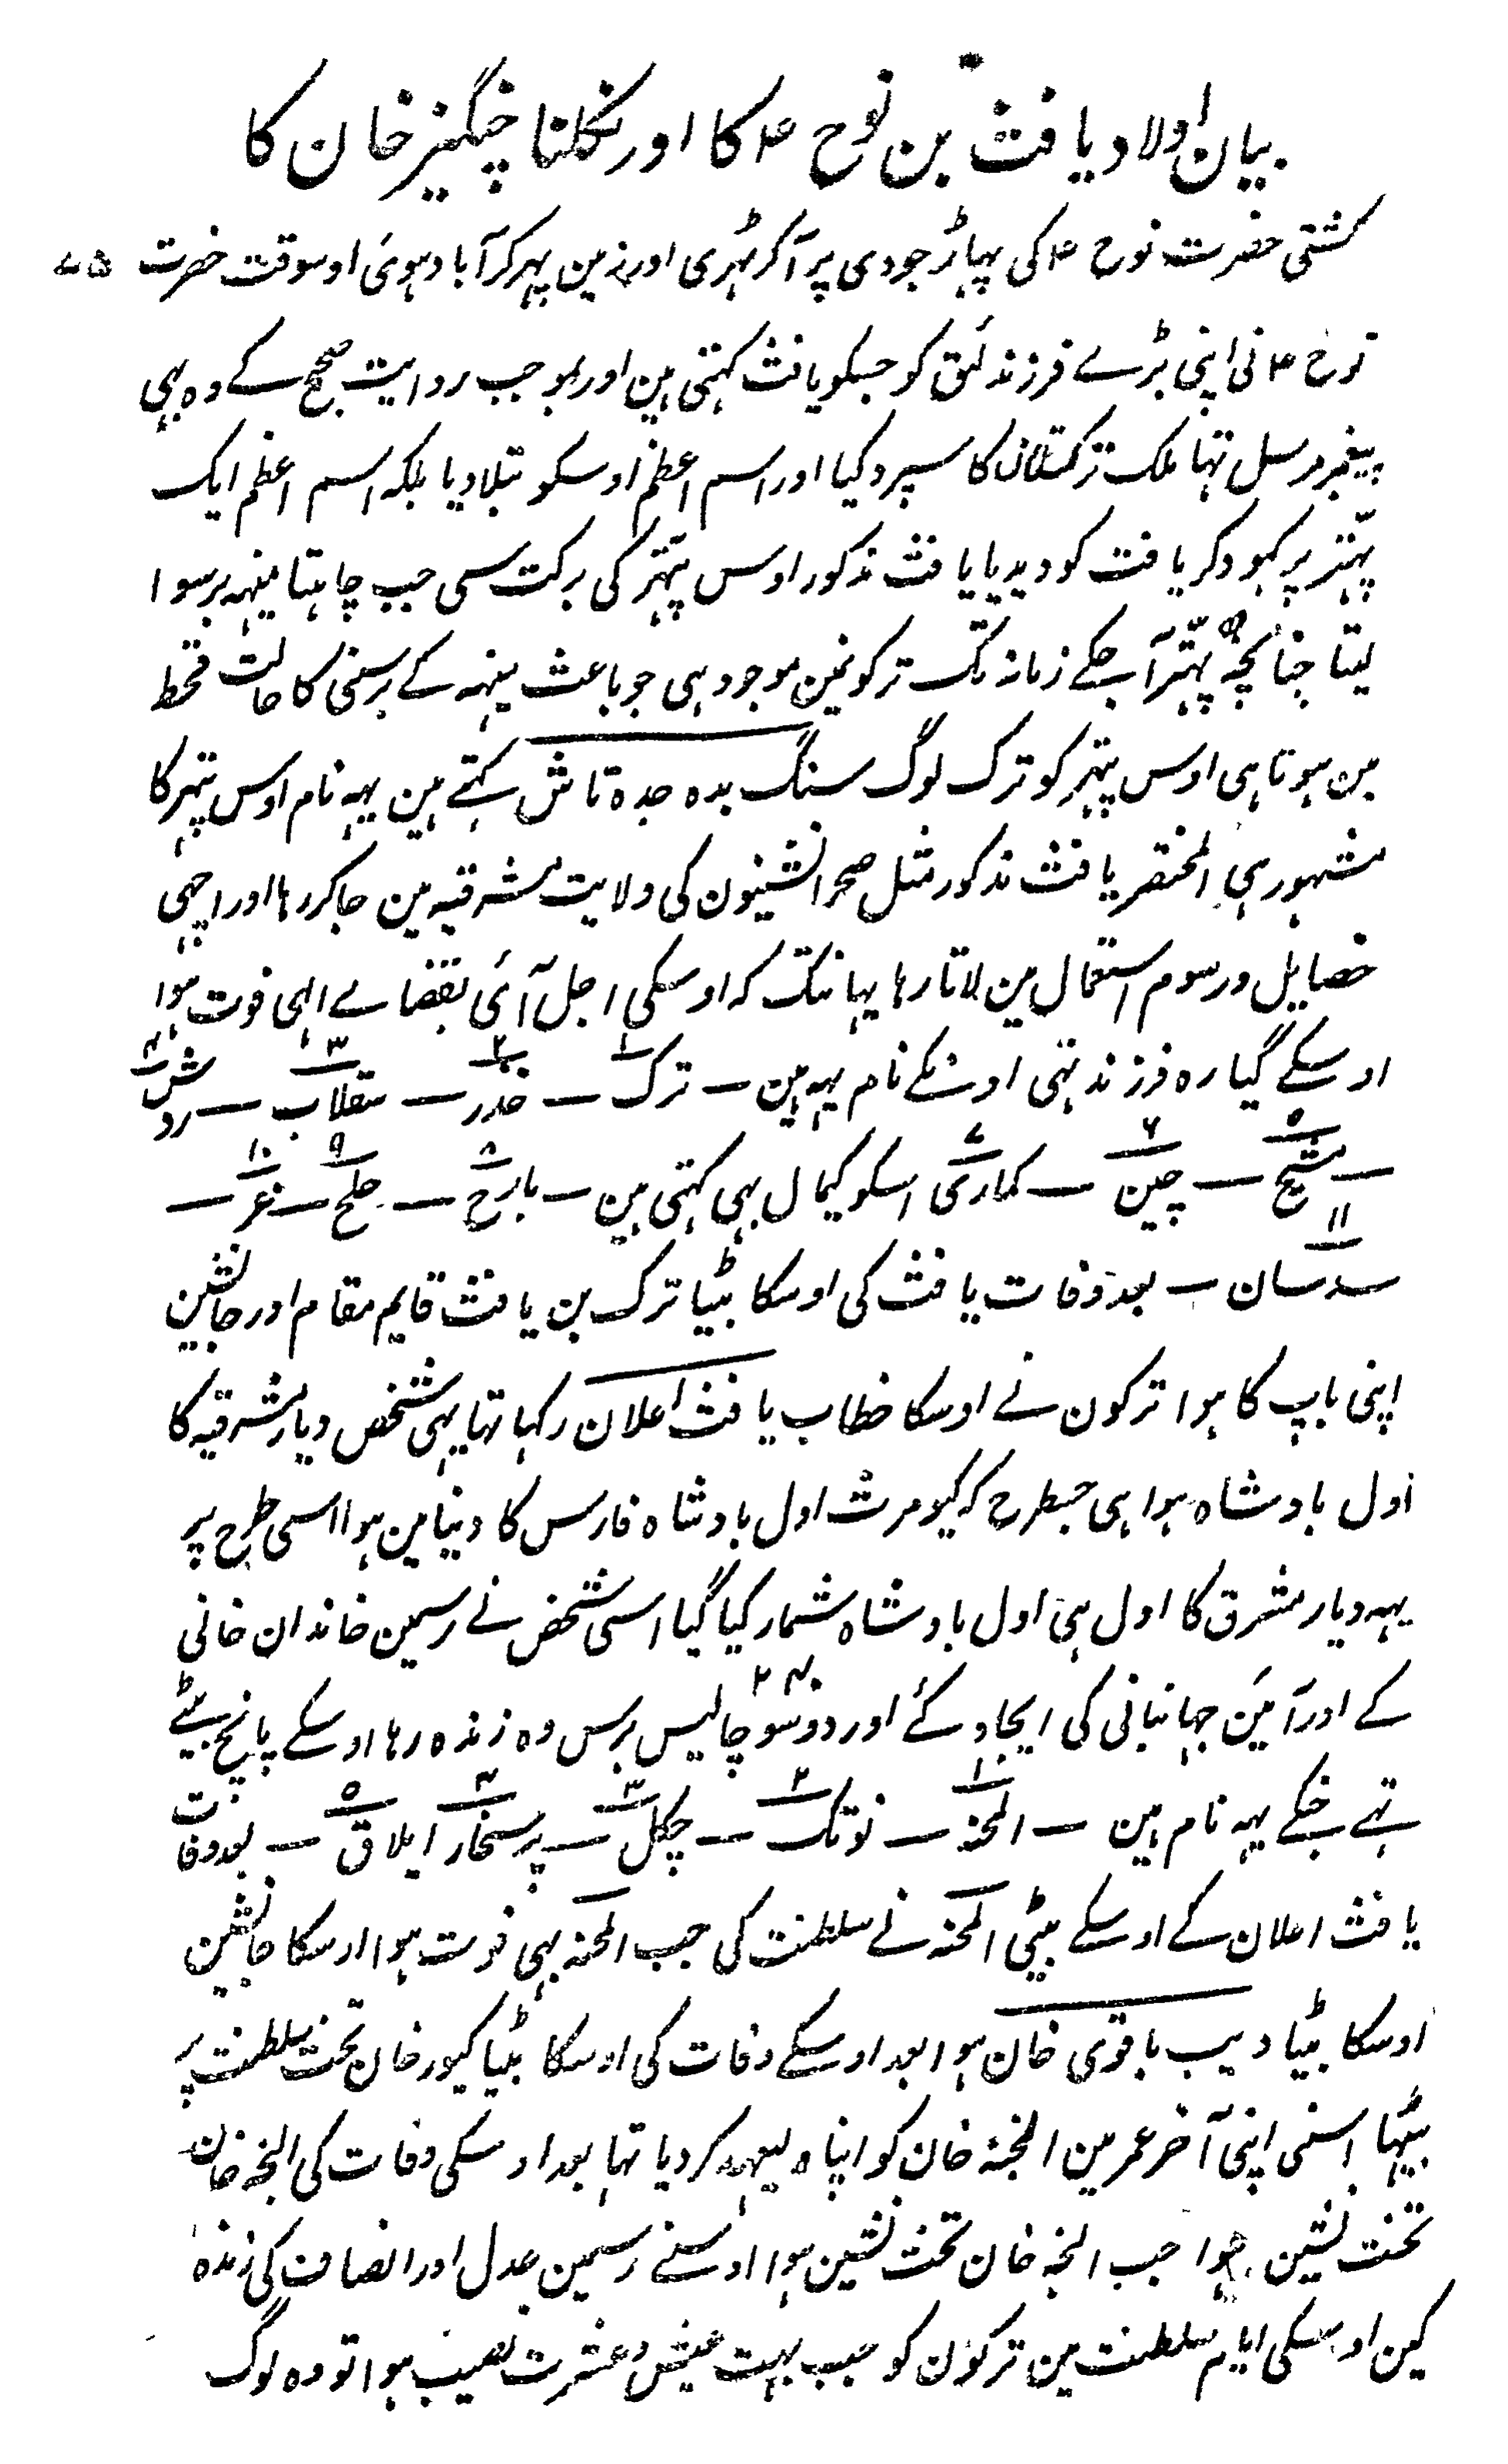 بیان اولاد یافث بن نوح ۴ کا اور نکلنا چنگیز خان کا
کشتی حضرت نوح ۴ کی پہاڑ جودی پر آکر ٹہری اور زمین پہر کر آباد ہوئی اوسوقت حضرت
نوح ۴ نی اپنی بڑے فرزند لئق کو جسکو یافث کہتی ہین اور بموجب روایت صحیح کے وہ بہی
پیغمبر مرسل تہا ملک ترکستان کا سپرد کیا اور اسم اعظم اوسکو بتلا دیا بلکہ اسم اعظم ایک
پہتر پر کہود کر یافث کو دیدیا یافث مذکور اوس پتہر کی برکت سی جب چاہتا مینہہ برسوا
لیتا چنانچہ وہ پہتر آجکے زمانہ تک ترکونمین موجود ہی جو باعث مینہہ کے برسنی کا حالت قحط
مین ہوتا ہی اوس پتہر کو ترک لوگ سنگ بدہ جدہ تاش کہتے ہین یہہ نام اوس پتہر کا
مشہور ہی المختصر یافث مذکور مثل صحرا نشینون کی ولایت مشرقیہ مین جاکر رہا اور اچہی
خصایل و رسوم استعمال مین لاتا رہا یہانتک کہ اوسکی اجل آئی بقضاے الہی فوت ہوا
اوسکے گیارہ فرزند تہی اونکے نام یہہ ہین — ترک ۱ — خدر ۲ — سقلاب ۳ — روش ۴
— منسج ۵ — چین ۶ — کماری ۷ اسکو کیمال بہی کہتی ہین — بارح ۸ — خلج ۹ — غز ۱۰ —
سدسان ۱۱ — بعد وفات یافث کی اوسکا بیٹا ترک بن یافث قایم مقام اور جانشین
اپنی باپ کا ہوا ترکون نے اوسکا خطاب یافث اعلان رکہا تہا یہی شخص دیار مشرقیہ کا
اول بادشاہ ہوا ہی جسطرح کہ کیومرث اول بادشاہ فارس کا دنیا مین ہوا اسی طرح پر
یہہ دیار مشرق کا اول ہی اول بادشاہ شمار کیا گیا اسی شخص نے رسمین خاندان خانی
کے اور آئین جہانبانی کی ایجاد کئے اور دوسو چالیس ۲۴۰ برس وہ زندہ رہا اوسکے پانچ بیٹے
تہے جنکے یہہ نام ہین — المخنہ ۱ — توتک ۲ — چکل ۳ — پرسخار ۴ ایلاق ۵ — بعد وفات
یافث اعلان کے اوسکے بیٹی المخنہ نے سلطنت کی جب المخنہ بہی فوت ہوا اوسکا جانشین
اوسکا بیٹا دیب باقوی خان ہوا بعد اوسکے وفات کی اوسکا بیٹا کیور خان تخت سلطنت پر
بیٹہا اسنی اپنی آخر عمر مین النجہ خان کو اپنا ولیعہد کر دیا تہا بعد اوسکی وفات کی النجہ خان
تخت نشین ہوا جب النجہ خان تخت نشین ہوا اوسنے رسمین عدل اور انصاف کی زندہ
کین اوسکی ایام سلطنت مین ترکون کو جب بہت عیش و عشرت نصیب ہوا تو وہ لوگ